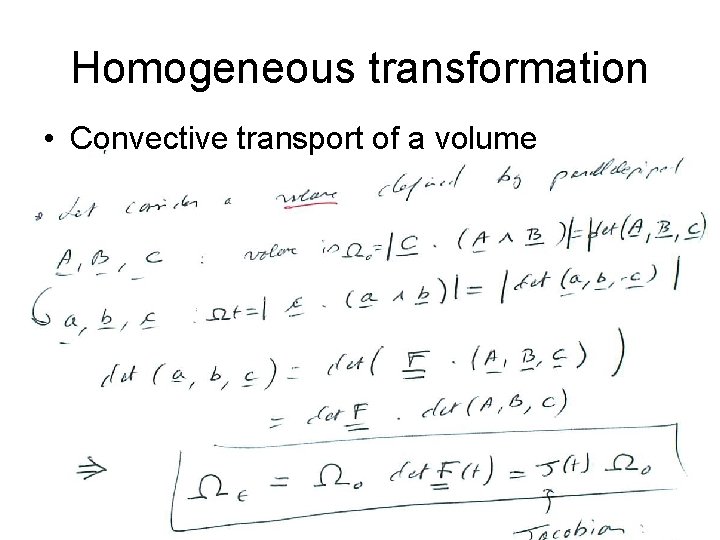 Homogeneous transformation
• Convective transport of a volume
• Let consider a volume defined by parallelepiped
A, B, C : volume is Ω₀ = |C · (A ∧ B)| = |det(A, B, C)|
a, b, c : Ωt = |c · (a ∧ b)| = |det(a, b, c)|
det(a, b, c) = det(F · (A, B, C))
= det F · det(A, B, C)
⇒ Ωt = Ω₀ det F(t) = J(t) Ω₀
Jacobian :